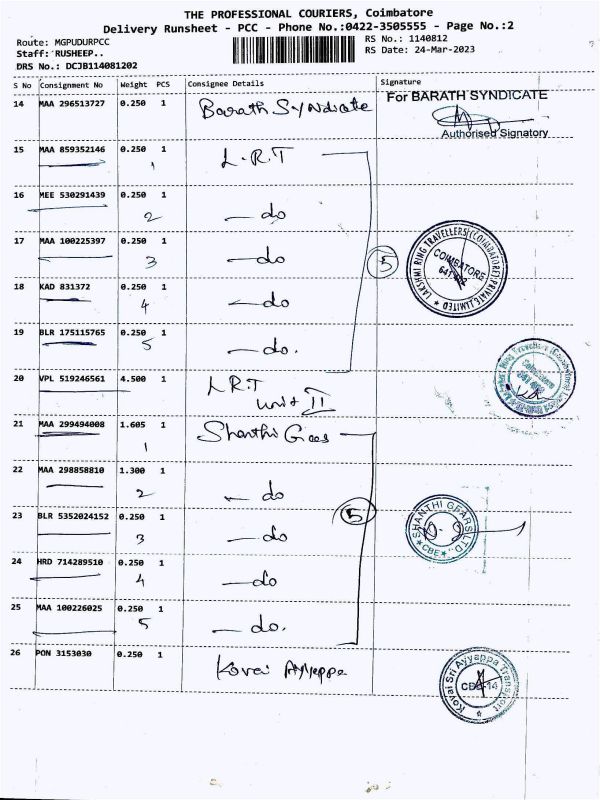 THE PROFESSIONAL COURIERS, Coimbatore
Delivery Runsheet - PCC - Phone No.:0422-3505555 - Page No.:2
Route: MGPUDURPCC
RS No.: 1140812
Staff: RUSHEEP..
RS Date: 24-Mar-2023
DRS No.: DCJB114081202
S No Consignment No Weight PCS Consignee Details Signature
14 MAA 296513727 0.250 1 Barath Syndicate For BARATH SYNDICATE
Authorised Signatory
15 MAA 859352146 0.250 1 L.R.T
1
16 MEE 530291439 0.250 1
2 — do
17 MAA 100225397 0.250 1
3 — do 5
LAKSHMI RING TRAVELLERS (COIMBATORE) PRIVATE LIMITED
COIMBATORE
18 KAD 831372 0.250 1
4 — do
19 BLR 175115765 0.250 1
5 — do.
20 VPL 519246561 4.500 1 L.R.T
Unit II
Coimbatore
21 MAA 299494008 1.605 1 Shanthi Gears
1
22 MAA 298858810 1.300 1
2 — do
5
SHANTHI GEARS LTD
CBE
23 BLR 5352024152 0.250 1
3 — do
24 HRD 714289510 0.250 1
4 — do
25 MAA 100226025 0.250 1
5 — do.
26 PON 3153030 0.250 1 Kovai Ayyappa
Kovai Sri Ayyappa Transport